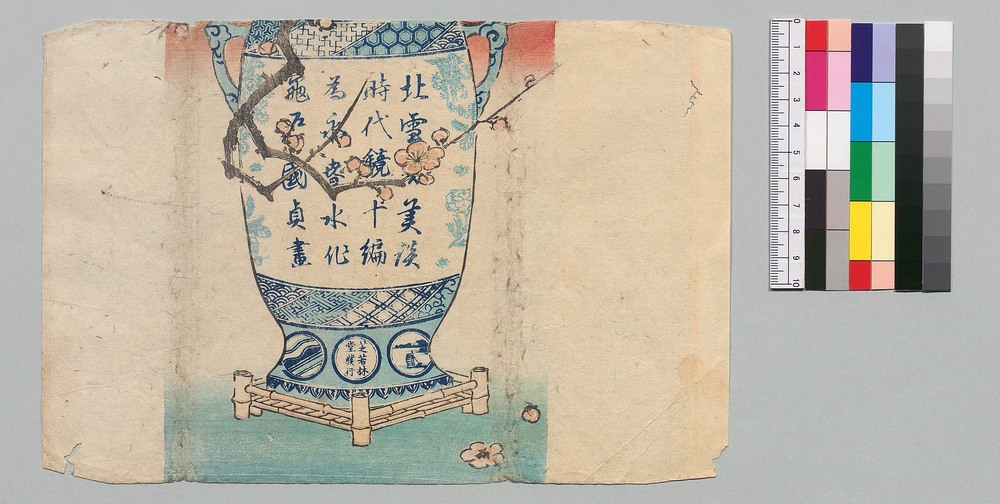 北雪美談
時代鏡十編
為永春水作
龜戸國貞畫
若林
堂發行
0 1 2 3 4 5 6 7 8 9 10